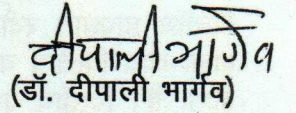 दीपाली भार्गव
(डॉ. दीपाली भार्गव)